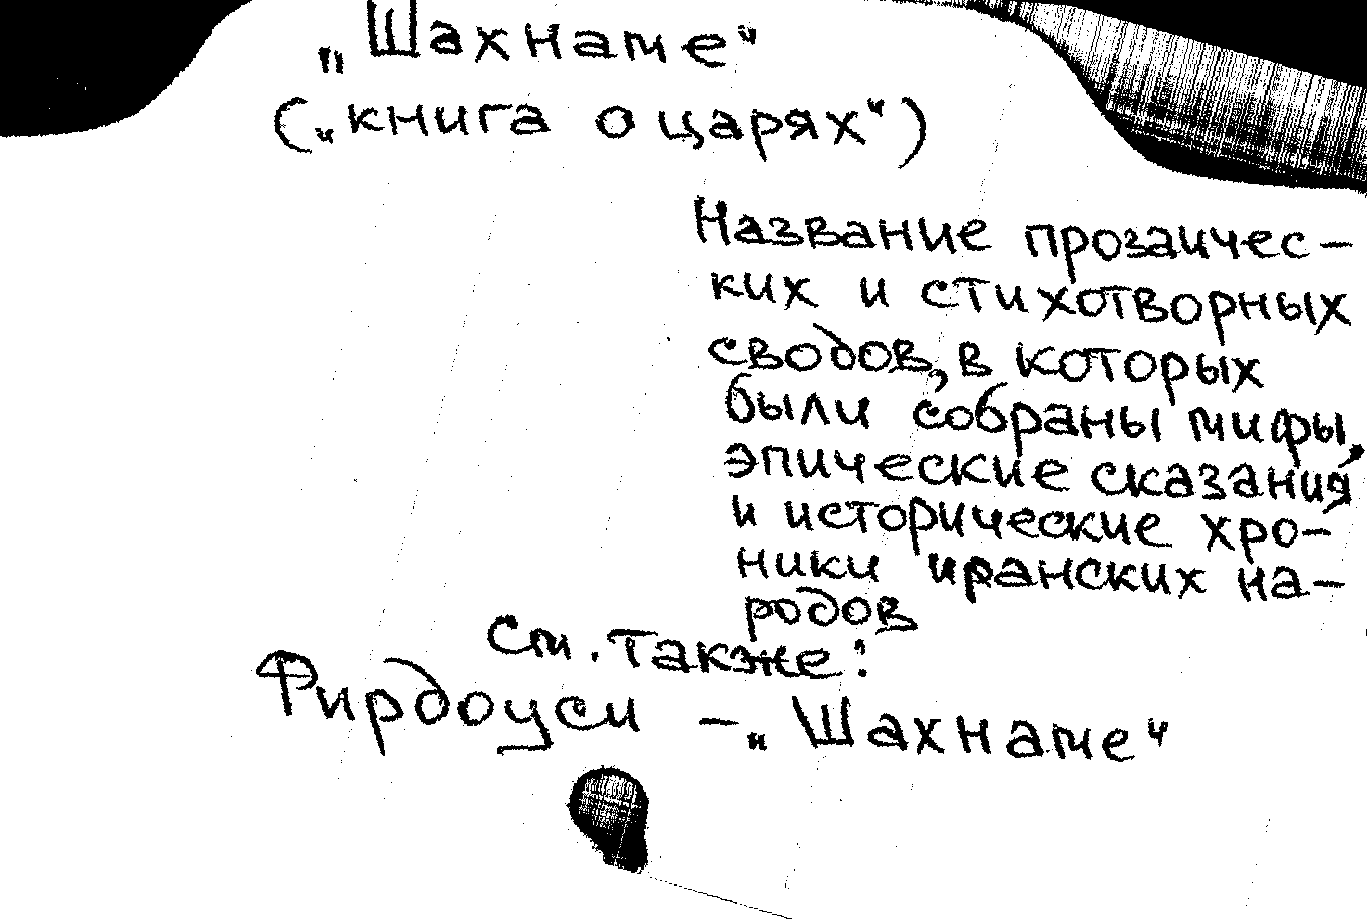 „Шахнаме“
(„книга о царях“)
Название прозаичес-
ких и стихотворных
сводов, в которых
были собраны мифы,
эпические сказания
и исторические хро-
ники иранских на-
родов
См. также:
Фирдоуси – „Шахнаме“